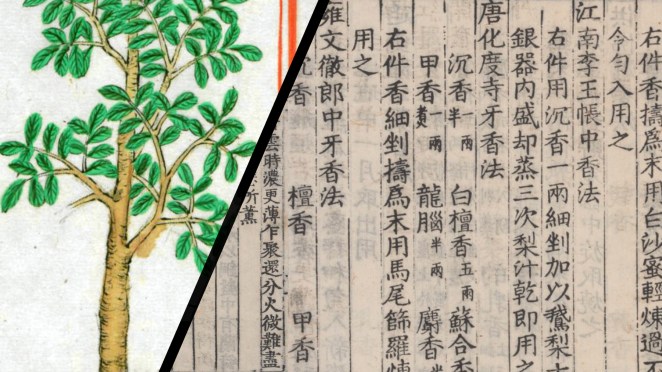 右件香擣爲末用白沙蜜輕煉過不
令匀入用之
江南李王帳中香法
右件用沉香一兩細剉加以鵝梨十
銀器内盛却蒸三次梨汁乾即用之
唐化度寺牙香法
沉香 白檀香五兩 蘇合香
甲香一兩煑 龍腦半兩 麝香
右件香細剉擣爲末用馬尾篩羅煉
用之
雍文徹郎中牙香法
沉香 檀香 甲香
雲時濃更薄乍聚還分火微難盡
所薰